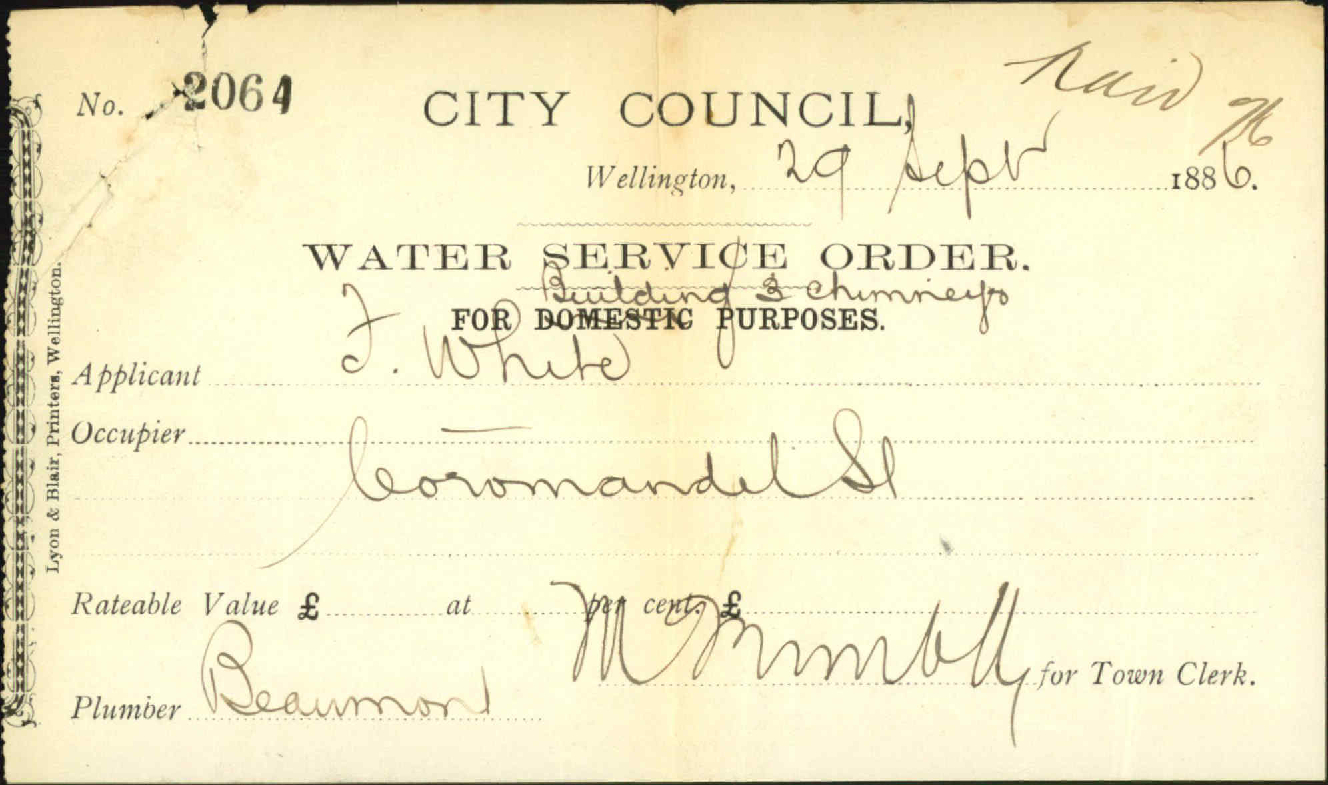 No. 2064
CITY COUNCIL,
Paid
Wellington, 29 Sept 1886.
WATER SERVICE ORDER.
Building 3 Chimneys
FOR DOMESTIC PURPOSES.
Applicant F. White
Occupier —
Coromandel St
Rateable Value £ at per cent. £
for Town Clerk.
Plumber Beaumont
Lyon & Blair, Printers, Wellington.